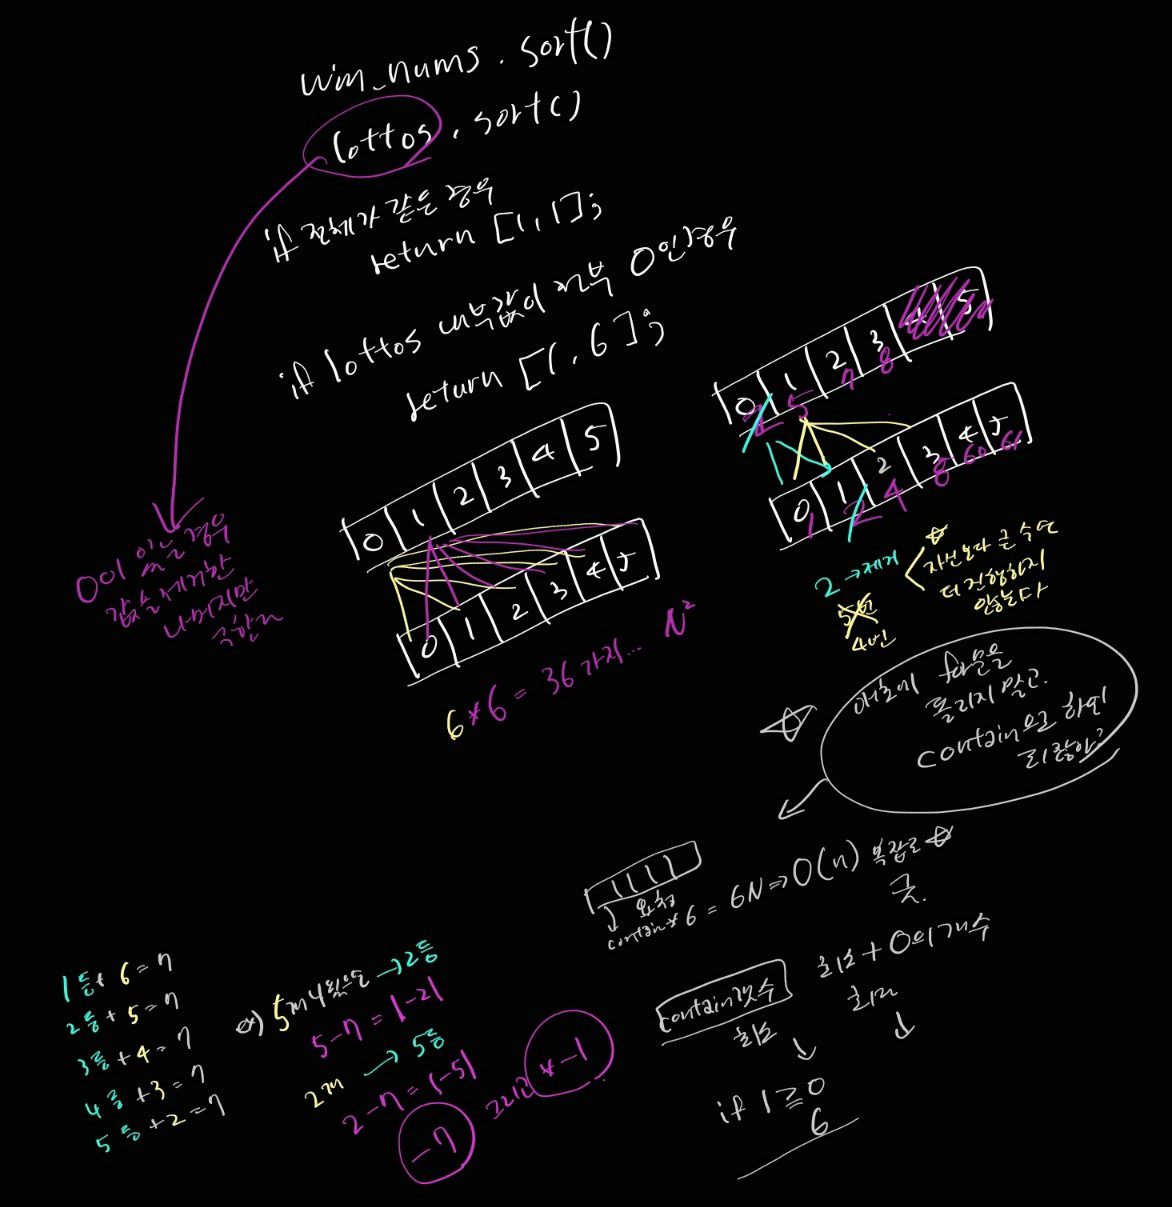 win_nums.sort()
lottos.sort()
if 전체가 같은 경우
return [1,1];
if lottos 내부값이 전부 0인경우
return [1,6];
0 1 2 3 4 5
0 1 2 3 4 5
6*6 = 36가지... N²
0이 있을 경우
값을 제거한
나머지만
구한다
0 1 2 3 4 5
2 5 7 8
0 1 2 3 4 5
1 2 4 8 60 61
2 → 제거
5번
4번
자신보다 큰 수면
더 진행하지
않는다
애초에 for문을
돌리지 말고
contain으로 하면
되잖아?
1 1 1 1
contain*6 = 6N => O(n) 복잡도
굿.
contain갯수
최소
최소 + 0의개수
최대
if 1 ≥ 0
6
1등+ 6 = 7
2등 + 5 = 7
3등 + 4 = 7
4등 + 3 = 7
5등 + 2 = 7
ex) 5개 → 2등
5-7 = |-2|
2개 → 5등
2-7 = |-5|
-7
그리고 * -1